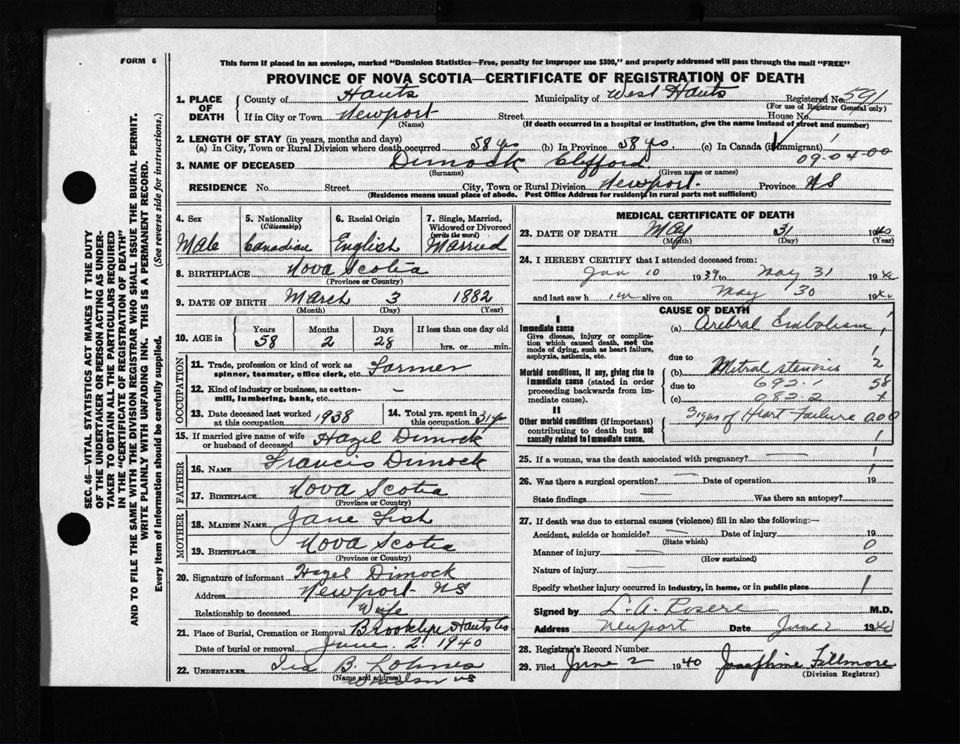 FORM 6
This form if placed in an envelope, marked "Dominion Statistics—Free, penalty for improper use $300," and properly addressed will pass through the mail "FREE"
PROVINCE OF NOVA SCOTIA—CERTIFICATE OF REGISTRATION OF DEATH
1. PLACE OF DEATH { County of Hants Municipality of West Hants Registered No. 591
(For use of Registrar General only)
If in City or Town Newport Street House No.
(Name) (If death occurred in a hospital or institution, give the name instead of street and number)
2. LENGTH OF STAY (in years, months and days)
(a) In City, Town or Rural Division where death occurred 58 yrs (b) In Province 58 yrs. (c) In Canada (if immigrant)
09-04-00
3. NAME OF DECEASED Dimock Clifford
(Surname) (Given name or names)
RESIDENCE No. Street City, Town or Rural Division Newport. Province NS
(Residence means usual place of abode. Post Office Address for residents in rural parts not sufficient)
4. Sex 5. Nationality (Citizenship) 6. Racial Origin 7. Single, Married, Widowed or Divorced (write the word)
Male Canadian English Married
8. BIRTHPLACE Nova Scotia
(Province or Country)
9. DATE OF BIRTH March 3 1882
(Month) (Day) (Year)
10. AGE in { Years Months Days If less than one day old
58 2 28 hrs. or min.
OCCUPATION
11. Trade, profession or kind of work as spinner, teamster, office clerk, etc. Farmer
12. Kind of industry or business, as cotton-mill, lumbering, bank, etc. —
13. Date deceased last worked at this occupation 1938 14. Total yrs. spent in this occupation 31 y
15. If married give name of wife or husband of deceased Hazel Dimock
FATHER
16. NAME Francis Dimock
17. BIRTHPLACE Nova Scotia
(Province or Country)
MOTHER
18. MAIDEN NAME Jane Fish
19. BIRTHPLACE Nova Scotia
(Province or Country)
20. Signature of informant Hazel Dimock
Address Newport NS
Relationship to deceased Wife
21. Place of Burial, Cremation or Removal Brooklyn Hants Co
Date of burial or removal June. 2. 1940
22. UNDERTAKER Ira B. Lohnes
(Name and address)
Windsor NS
MEDICAL CERTIFICATE OF DEATH
23. DATE OF DEATH May 31 1940
(Month) (Day) (Year)
24. I HEREBY CERTIFY that I attended deceased from:
Jan 10 1939 to May 31 1940
and last saw h im alive on May 30 1940
CAUSE OF DEATH
I
Immediate cause (a) Cerebral Embolism
Give disease, injury or complication which caused death, not the mode of dying, such as heart failure, asphyxia, asthenia, etc.
due to
Morbid conditions, if any, giving rise to immediate cause (stated in order proceeding backwards from immediate cause). (b) Mitral stenosis 2
due to 692.1 58
(c) 082.2
II
Other morbid conditions (if important) contributing to death but not causally related to immediate cause. Signs of Heart Failure 000
25. If a woman, was the death associated with pregnancy? —
26. Was there a surgical operation? — Date of operation 19
State findings — Was there an autopsy?
27. If death was due to external causes (violence) fill in also the following:—
Accident, suicide or homicide? — Date of injury 19
(State which) 0
Manner of injury —
(How sustained) 0
Nature of injury —
Specify whether injury occurred in industry, in home, or in public place 1
Signed by M.D.
Address Newport Date June 2 1940
28. Registrar's Record Number
29. Filed June 2 1940 Josephine Fillmore
(Division Registrar)
SEC. 46—VITAL STATISTICS ACT MAKES IT THE DUTY
OF THE UNDERTAKER OR PERSON ACTING AS UNDER-
TAKER TO OBTAIN ALL THE PARTICULARS REQUIRED
IN THE "CERTIFICATE OF REGISTRATION OF DEATH"
AND TO FILE THE SAME WITH THE DIVISION REGISTRAR WHO SHALL ISSUE THE BURIAL PERMIT.
WRITE PLAINLY WITH UNFADING INK. THIS IS A PERMANENT RECORD.
Every item of information should be carefully supplied. (See reverse side for instructions.)